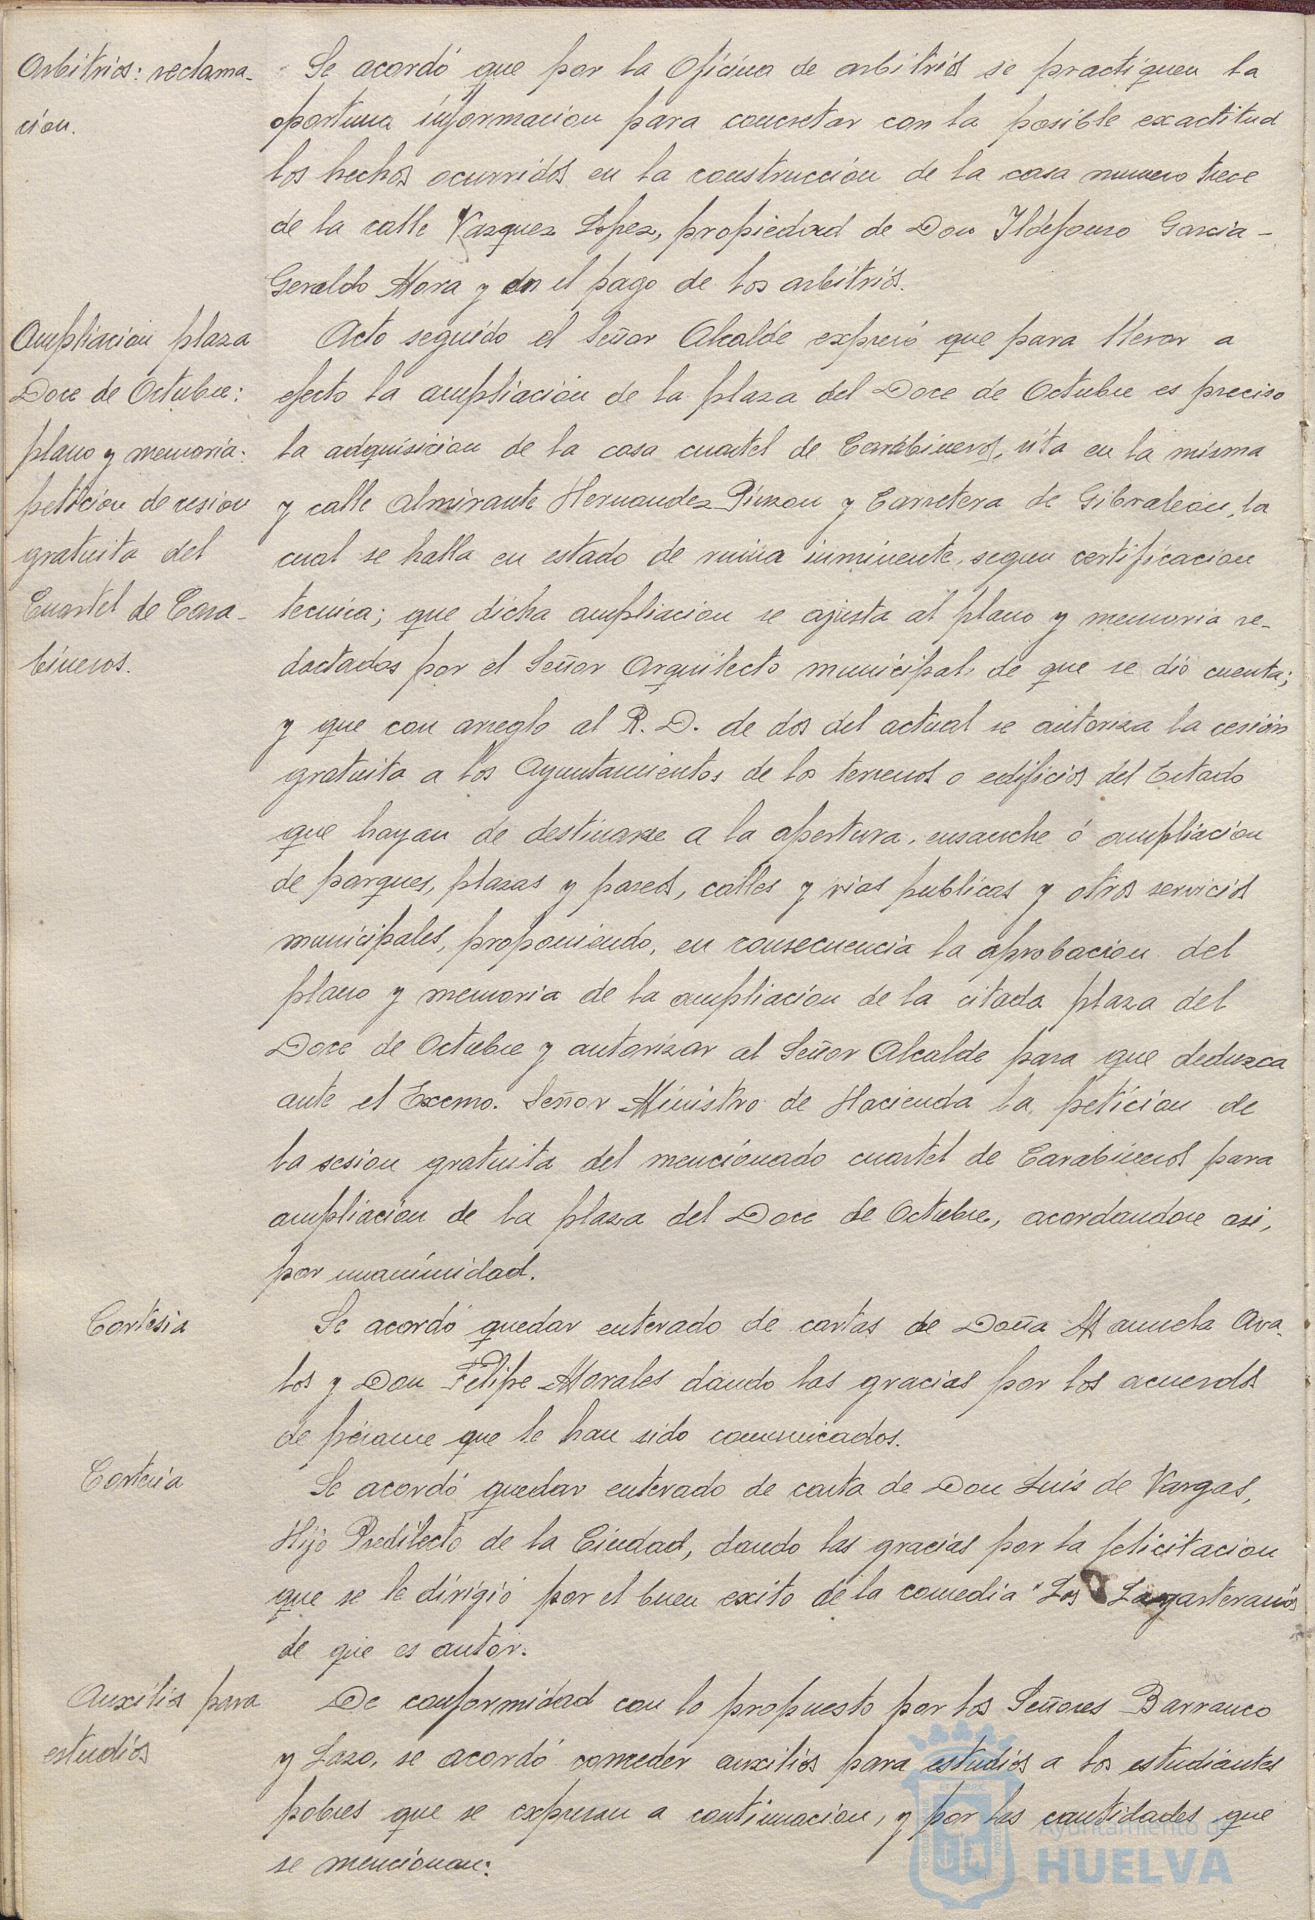 Arbitrios: reclama-
cion.
Se acordó que por la Oficina de arbitrios se practiquen la
oportuna información para concretar con la posible exactitud
los hechos ocurridos en la construcción de la casa numero trece
de la calle Vazquez Lopez, propiedad de Don Ildefonso Garcia-
Geraldo Mora y en el pago de los arbitrios.
Ampliacion plaza
Doce de Octubre:
plano y memoria:
petición de cesion
gratuita del
Cuartel de Cara-
bineros.
Acto seguido el Señor Alcalde expresó que para llevar a
efecto la ampliación de la plaza del Doce de Octubre es preciso
la adquisicion de la casa cuartel de Carabineros, sita en la misma
y calle Almirante Hernandez-Pinzon y Carretera de Gibraleon, la
cual se halla en estado de ruina inminente, segun certificacion
tecnica; que dicha ampliacion se ajusta al plano y memoria re-
dactados por el Señor Arquitecto municipal de que se dió cuenta;
y que con arreglo al R. D. de dos del actual se autoriza la cesión
gratuita a los Ayuntamientos de los terrenos o edificios del Estado
que hayan de destinarse a la apertura, ensanche ó ampliacion
de parques, plazas y paseos, calles y vias publicas y otros servicios
municipales, proponiendo, en consecuencia la aprobacion del
plano y memoria de la ampliacion de la citada plaza del
Doce de Octubre y autorizar al Señor Alcalde para que deduzca
ante el Excmo. Señor Ministro de Hacienda la petición de
la sesion gratuita del mencionado cuartel de Carabineros para
ampliacion de la plaza del Doce de Octubre, acordandose asi,
por unanimidad.
Cortesia
Se acordó quedar enterado de cartas de Doña Manuela Ava-
los y Don Felipe Morales dando las gracias por los acuerdos
de pésame que le han sido comunicados.
Cortesia
Se acordó quedar enterado de carta de Don Luis de Vargas,
Hijo Predilecto de la Ciudad, dando las gracias por la felicitacion
que se le dirigió por el buen exito de la comedia "Los Lagarteranos"
de que es autor.
Auxilios para
estudios
De conformidad con lo propuesto por los Señores Barranco
y Lazo, se acordó conceder auxilios para estudios a los estudiantes
pobres que se expresan a continuacion, y por las cantidades que
se mencionan:
Ayuntamiento de
HUELVA